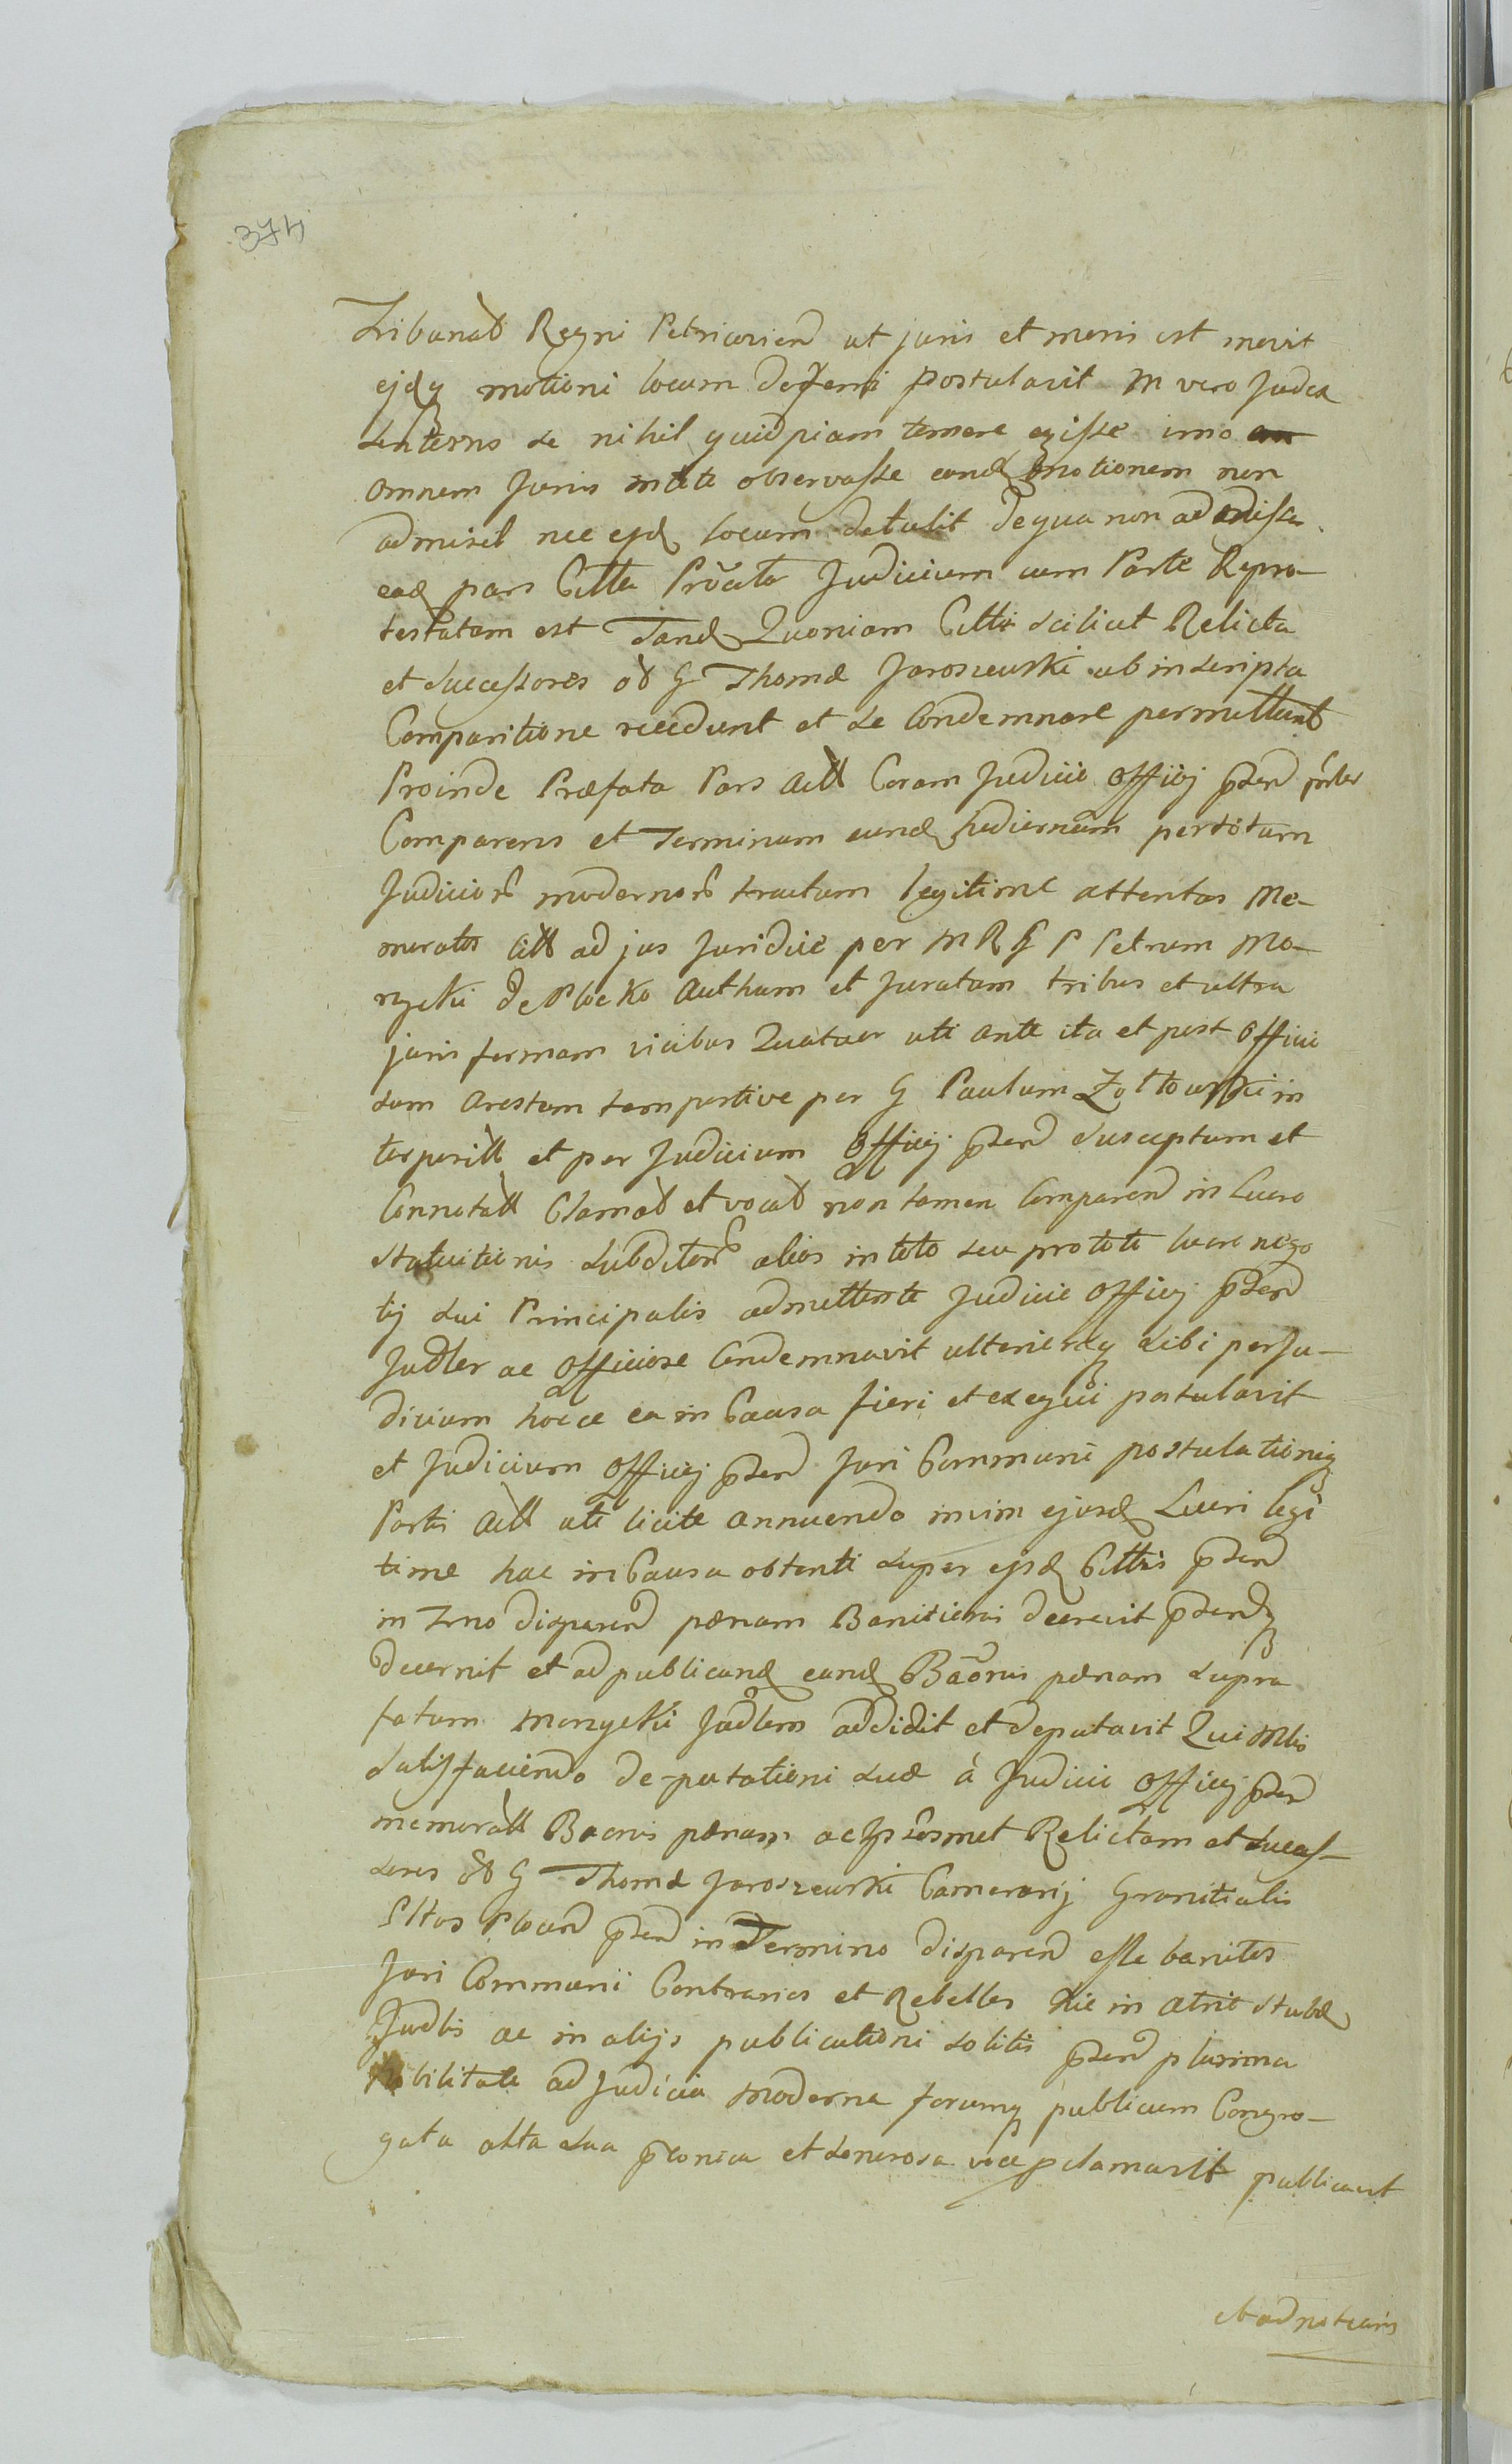 374
Tribunał Regni Petricovien ut juris et moris est movit
ejdq motioni locum deferri postulavit M vero Judex
Seriterno se nihil quidpiam temere egisse imo
omnem Juris observasse eand motionem non
admisit nec ejd locum detulit de qua non admissa
ead pars Citta Judicium cum Parte Repro-
testatam est Tand Quoniam Citti scilicet Relicta
et Successores od G Thomæ Jaroszewski ab inscripta
Comparitione recedunt et se Condemnare permittunt
Proinde Præfata Pars Act Coram Judicio Officij pnter
Comparens et Terminum eund hodiernum per totum
Judicior modernor tractum legitime attentas Me-
moratos Citt ad jus Juridice per M R G P Petrum Mo-
nyski de Plocko Authum et Juratum tribus et ultra
juris formam vicibus Quatuor uti ante ita et post Offici
sum Arestum tempestive per G Paulum Zoltowski in
terpositt et per Judicium Officij susceptum et
Connotatt Clamat et vocat non tamen Comparen in Lucro
statuitionis Subditor alias in toto seu pro toto lucro nego
tij sui Principalis admittente Judicio Officij
Judler ac Officiose Condemnavit ulteriusq sibi per Ju-
dicium hocce ea in Causa fieri et exequi postulavit
et Judicium Officij Juri Communi postulationiq
Partis Act uti licite annuendo invim ejusd Lucri legi
time hac in Causa obtenti super ejsd Cittis
in Trno disparen pænam Banitionis decrevit
decernit et ad publicand eand Baonis pænam supra
fatum Monyski addidit et deputavit Qui
satisfaciendo de-putationi suæ à Judicio Officij
memoratt Baonis pænam ac Relictam et Succes-
sores od G Thomæ Jaroszewski Camerarij Granitialis
Cittos Plocen in Termino disparen esse banitos
Juri Communi Contrarios et Rebelles Hic in Atrio Stubæ
Judlis ac in alijs publicationi solitis plurima
Nobilitate ad Judicia moderna forumq publicum Congre-
gata alta sua et sonorosa voce pclamavit publicavit